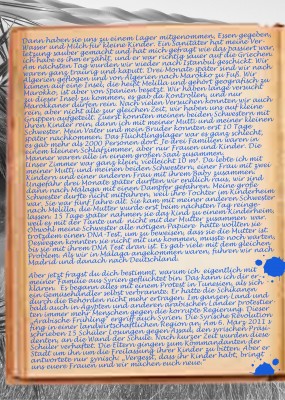 Dann haben sie uns zu einem Lager mitgenommen, Essen gegeben,
Wasser und Milch für kleine Kinder. Ein Sanitäter hat meine Ver-
letzung sauber gemacht und hat mich gefragt wie das passiert war,
ich habe es ihm erzählt, und er war richtig sauer auf die Griechen.
Am nächsten Tag wurden wir wieder nach Istanbul geschickt. Wir
waren ganz traurig und kaputt. Drei Monate später sind wir nach
Algerien geflogen und von Algerien nach Marokko zu Fuß. Wir
kamen auf eine Insel, die heißt Melilla und gehört geografisch zu
Marokko, ist aber von Spanien besetzt. Wir haben lange versucht
zu dieser Insel zu kommen, es gab da Kontrollen, und nur
Marokkaner dürfen rein. Nach vielen Versuchen konnten wir auch
rein, aber nicht alle zur gleichen Zeit, wir haben uns auf kleine
Gruppen aufgeteilt. Zuerst konnten meinen beiden Schwestern mit
ihren Kinder rein, dann ich mit meiner Mutti und meiner kleinen
Schwester. Mein Vater und mein Bruder konnten erst 10 Tage
später nachkommen. Das Flüchtlingslager war es ganz schlecht,
es gab mehr als 2000 Personen dort. Je drei Familien waren in
einem kleinen Schlafzimmer, aber nur Frauen und Kinder. Die
Männer waren alle in einem großen Saal zusammen.
Unser Zimmer war ganz klein, vielleicht 10 m². Da lebte ich mit
meiner Mutti und meinen beiden Schwestern, einer Frau mit zwei
Kindern und einer anderen Frau mit ihrem Baby zusammen.
Ungefähr drei Monate später durften wir endlich raus, wir sind
dann nach Málaga mit einem Dampfer gefahren. Meine große
Schwester durfte nicht mitfahren, weil ihre Tochter im Kinderheim
war. Sie war fünf Jahre alt. Sie kam mit meiner anderen Schwester
nach Melilla. Die Mutter wurde erst beim nächsten Tag reinge-
lassen. 15 Tage später nahmen sie das Kind zu einem Kinderheim,
weil es mit der Tante und nicht mit der Mutter zusammen war.
Obwohl meine Schwester alle nötigen Papiere hatte wollten sie
trotzdem einen DNA-Test, um zu beweisen, dass sie die Mutter ist.
Deswegen konnten sie nicht mit uns kommen, musste noch warten,
bis sie mit ihrem DNA Test dran ist. Es gab viele mit dem gleichen
Problem. Als wir in Málaga angekommen waren, fuhren wir nach
Madrid und danach nach Deutschland.
Aber jetzt fragst du dich bestimmt, warum ich eigentlich mit
meiner Familie aus Syrien geflüchtet bin. Das kann ich dir er-
klären. Es begann alles mit einem Protest in Tunesien, als sich
ein Gemüsehändler selbst verbrannte. Er hatte die Schikanen
durch die Behörden nicht mehr ertragen. Im ganzen Land und
bald auch in Ägypten und anderen arabischen Länder protestier-
ten immer mehr Menschen gegen die korrupte Regierung. Dieser
„Arabische Frühling" ergriff auch Syrien. Die Syrische Revolution
fing in einer landwirtschaftlichen Region an. Am 6. März 2011
schrieben 15 Schüler Losungen gegen Assad, den syrischen Präsi-
denten, an die Wand der Schule. Nach kurzer Zeit wurden diese
Schüler verhaftet. Die Eltern gingen zum Kommandanten der
Stadt um ihn um die Freilassung ihrer Kinder zu bitten. Aber er
antwortete nur zynisch „Vergesst, dass ihr Kinder habt, bringt
uns eure Frauen und wir machen euch neue."